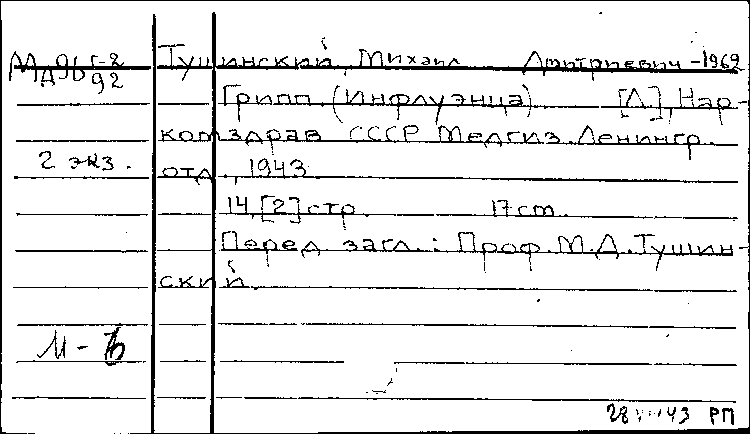 Мд96 г-2 Тушинский, Михаил Дмитриевич -1962
92
Грипп (Инфлуэнца) [Л.], Нар-
комздрав СССР Медгиз. Ленингр.
2 экз. отд., 1943
14,[2]стр. 17 ст.
Перед загл.: Проф. М.Д. Тушин-
ский.
РП